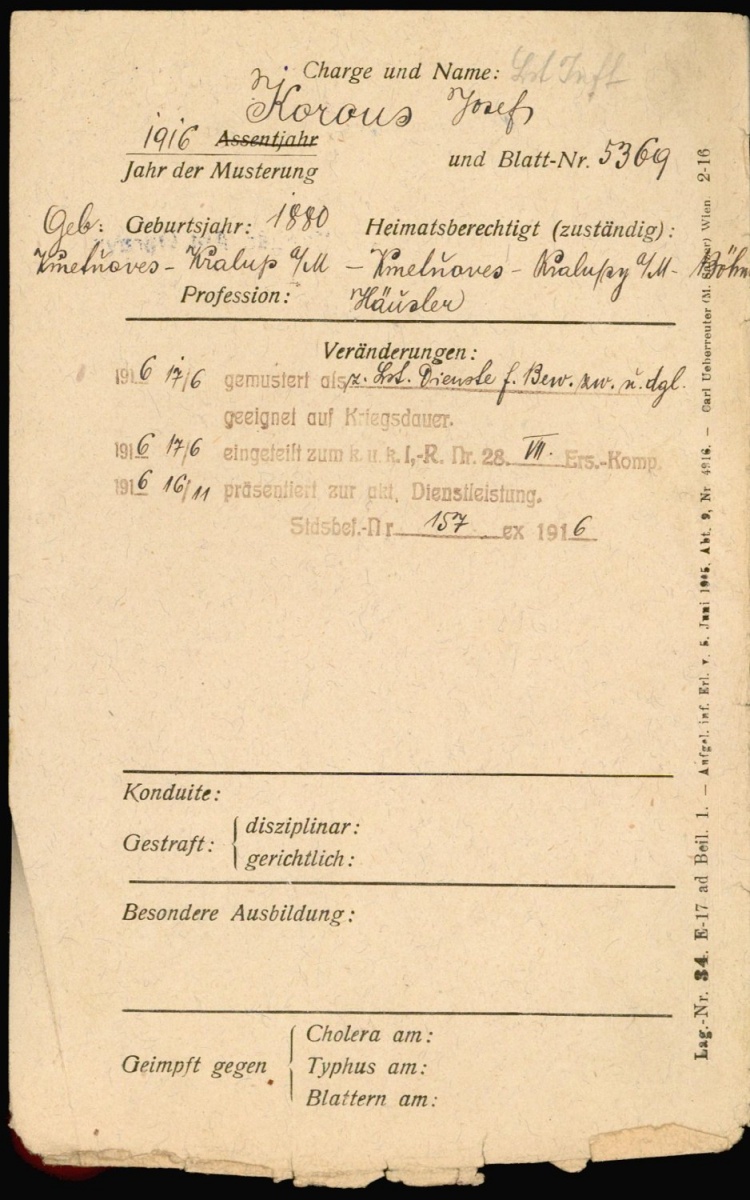 Charge und Name: Lst Inft
Korous Josef
1916 Assentjahr
Jahr der Musterung und Blatt-Nr. 5369
Geb: Geburtsjahr: 1880 Heimatsberechtigt (zuständig):
Kralup a/M - Kralupy a/M - Böhm
Profession: Häusler
Veränderungen:
1916 17/6 gemustert als z. Lst. Dienste f. Bew. zw. u. dgl.
geeignet auf Kriegsdauer.
1916 17/6 eingeteilt zum k. u. k. I.-R. Nr. 28. VII. Ers.-Komp.
1916 16/11 präsentiert zur akt. Dienstleistung.
Stdsbef.-Nr 157 ex 1916
Konduite:
Gestraft: disziplinar:
gerichtlich:
Besondere Ausbildung:
Geimpft gegen Cholera am:
Typhus am:
Blattern am:
Lag.-Nr. 34. E-17 ad Beil. 1. — Aufgel. inf. Erl. v. 5. Juni 1915, Abt. 9, Nr. 4916. — Carl Ueberreuter Wien. 2-16